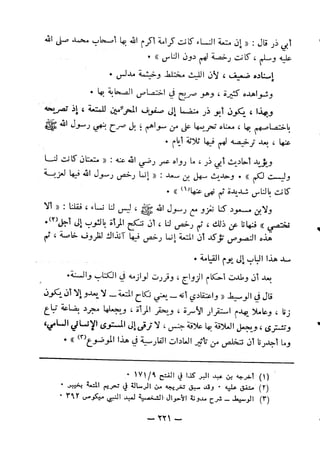 أبي ذر قال : « إن متعة النساء كانت كرامة أكرم الله بها أصحاب محمد صلى الله
عليه وسلم ، كانت رخصة لهم دون الناس » ٠
إسناده ضعيف ، لأن الليث مختلط وخيثمة مدلس ٠
وشواهده كثيرة ، وهو صريح في اختصاص الصحابة بها ٠
وبهذا ، يكون أبو ذر منضما إلى صفوف المحرمين للمتعة ، إذ تصريحه
باختصاصهم بها ، معناه تحريمها على من سواهم ؛ بل صرح بنهي رسول الله ﷺ
عنها ، بعد ترخيصه لهم فيها ثلاثة أيام ٠
ويؤيد أحاديث أبي ذر ، ما رواه عمر رضي الله عنه : « متعتان كانت لنا
وليست لكم » ٠ وحديث سهل بن سعد : « إنما رخص رسول الله فيها لعزبة
كانت بالناس شديدة ثم نهى عنها(١) » ٠
ولابن مسعود كنا نغزو مع رسول الله ﷺ ، ليس لنا نساء ، فقلنا : « ألا
نختصي » فنهانا عن ذلك ، ثم رخص لنا ، أن ننكح المرأة بالثوب إلى أجل(٢)٠
هذه النصوص تؤكد أن المتعة إنما رخص فيها آنذاك لظروف خاصة ، ثم
سد هذا الباب إلى يوم القيامة ٠
بعد أن وطدت أحكام الزواج ، وقررت لوازمه في الكتاب والسنة٠
قال في الوسيط « واعتقادي أنه – يعني نكاح المتعة – لا يعدو إلا أن يكون
زنا ، وعاملا يهدم استقرار الأسرة ، ويحقر المرأة ، ويجعلها مجرد بضاعة تباع
وتشترى ، ويجعل العلاقة بها علاقة جنس ، لا ترقى إلى المستوى الإنساني السامي،
وما أجدرنا أن نتخلص من تأثير العادات الفارسية في هذا الموضوع(٣) » ٠
(١) أخرجه بن عبد البر كذا في الفتح ١٧١/٩ ٠
(٢) متفق عليه ٠ وقد سبق تخريجه من الرسالة في تحريم المتعة بخيبر ٠
(٣) الوسيط – شرح مدونة الأحوال الشخصية لعبد النبي ميكوص ٣٩٢ ٠
– ٢٢١ –